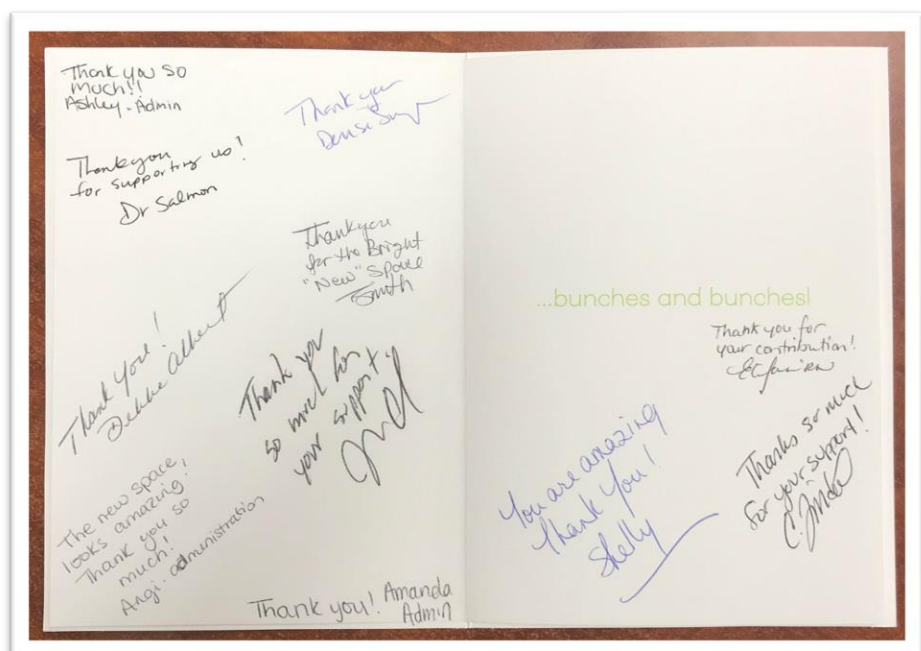 Thank you so
much!!
Ashley - Admin
Thank you
Thankyou
for supporting us!
Dr Salmon
Thankyou
for the Bright
"New" Space
Smith
Thank you!
Debbie Albert
Thank you
so much for
your support.
The new space,
looks amazing!
Thank you so
much!
Angi - administration
Thank you! Amanda
Admin
...bunches and bunches!
Thank you for
your contribution!
You are amazing
Thank You!
Shelly
Thanks so much
for your support!